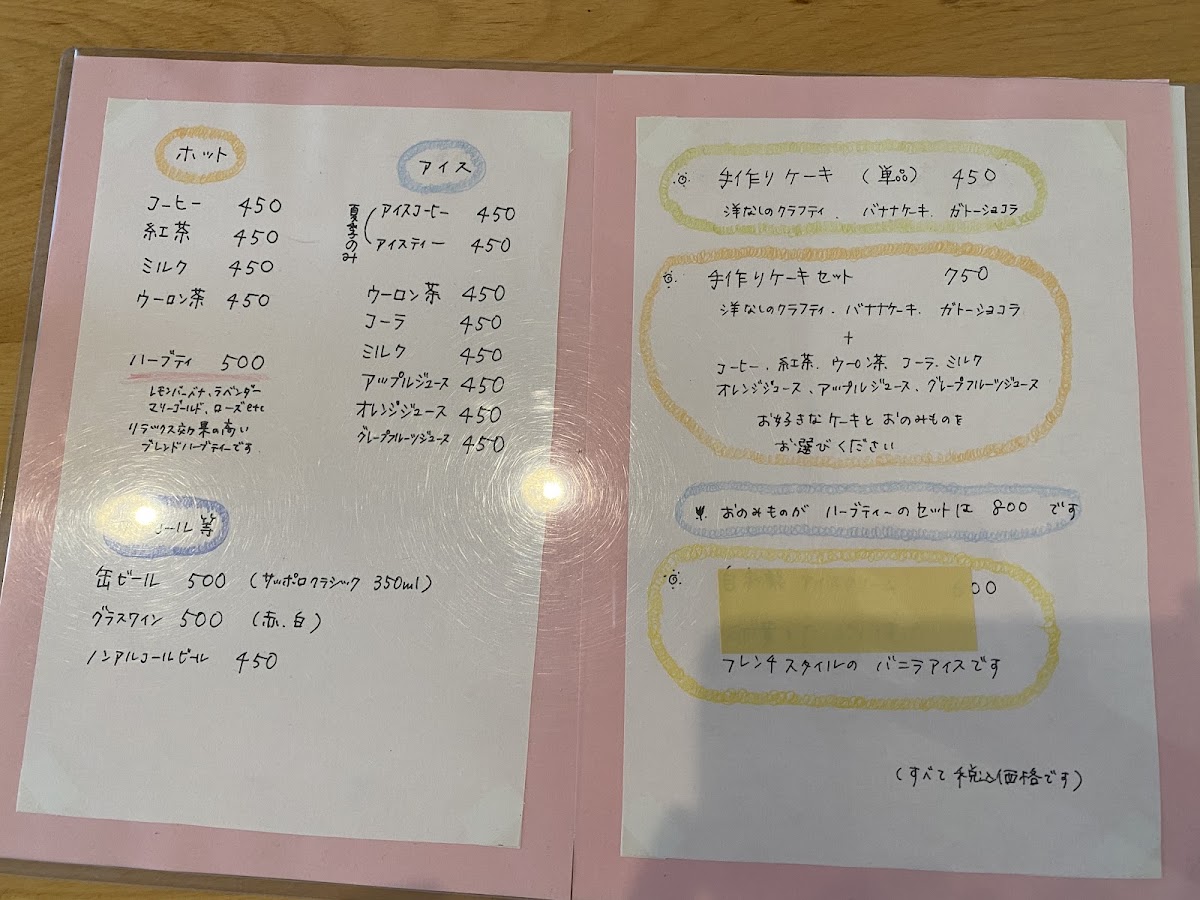 ホット
コーヒー 450
紅茶 450
ミルク 450
ウーロン茶 450
ハーブティ 500
レモンバーベナ、ラベンダー
マリーゴールド、ローズetc
リラックス効果の高い
ブレンドハーブティーです
アイス
夏季のみ
アイスコーヒー 450
アイスティー 450
ウーロン茶 450
コーラ 450
ミルク 450
アップルジュース 450
オレンジジュース 450
グレープフルーツジュース 450
コール等
缶ビール 500 (サッポロクラシック 350ml)
グラスワイン 500 (赤.白)
ノンアルコールビール 450
手作りケーキ (単品) 450
洋なしのクラフティ. バナナケーキ. ガトーショコラ
手作りケーキセット 750
洋なしのクラフティ. バナナケーキ. ガトーショコラ
+
コーヒー、紅茶、ウーロン茶、コーラ、ミルク
オレンジジュース、アップルジュース、グレープフルーツジュース
お好きなケーキとおのみものを
お選びください
おのみものが ハーブティーのセットは 800 です
00
フレンチスタイルの バニラアイスです
(すべて税込価格です)